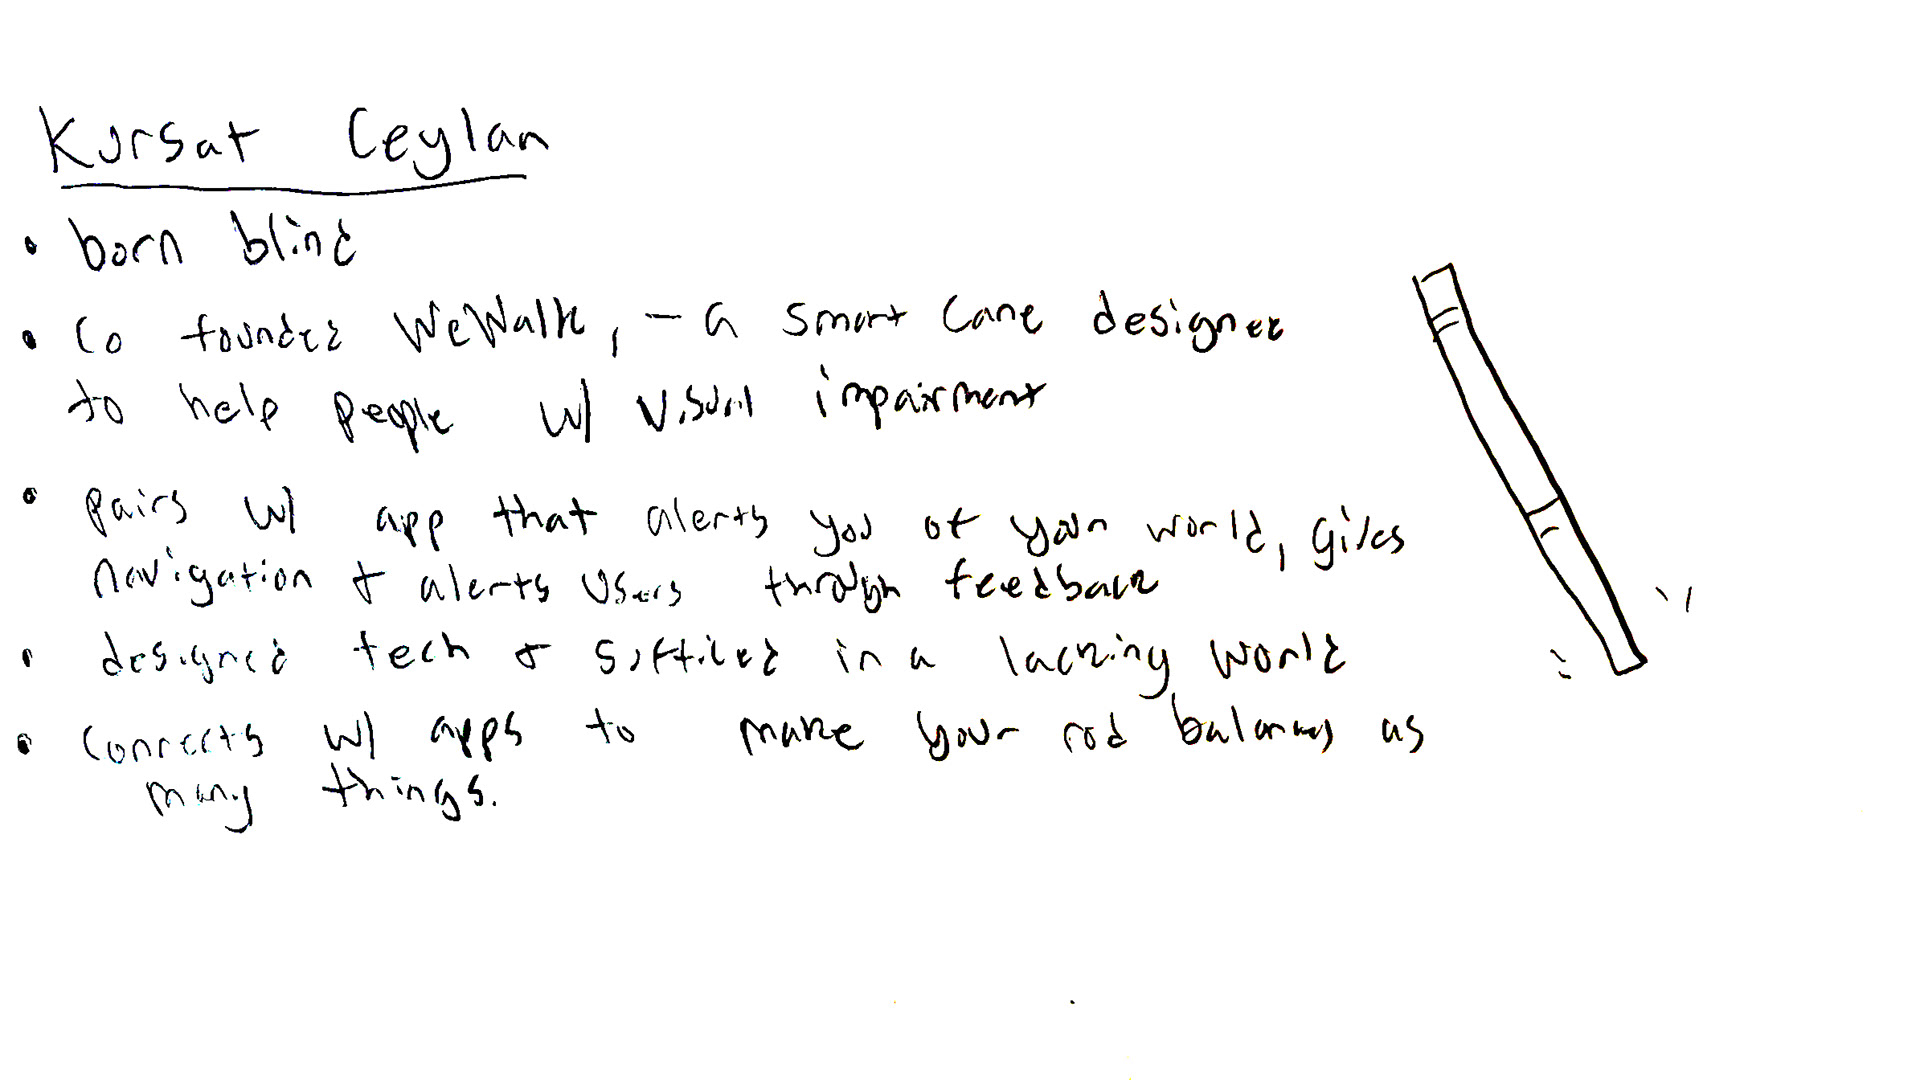 Kursat Ceylan
• born blind
• Co founded WeWalk, - a smart cane designed
to help people w/ visual impairment
• pairs w/ app that alerts you of your world, gives
navigation + alerts users through feedback
• designed tech & in a lacking world
• connects w/ apps to make your rod as
many things.